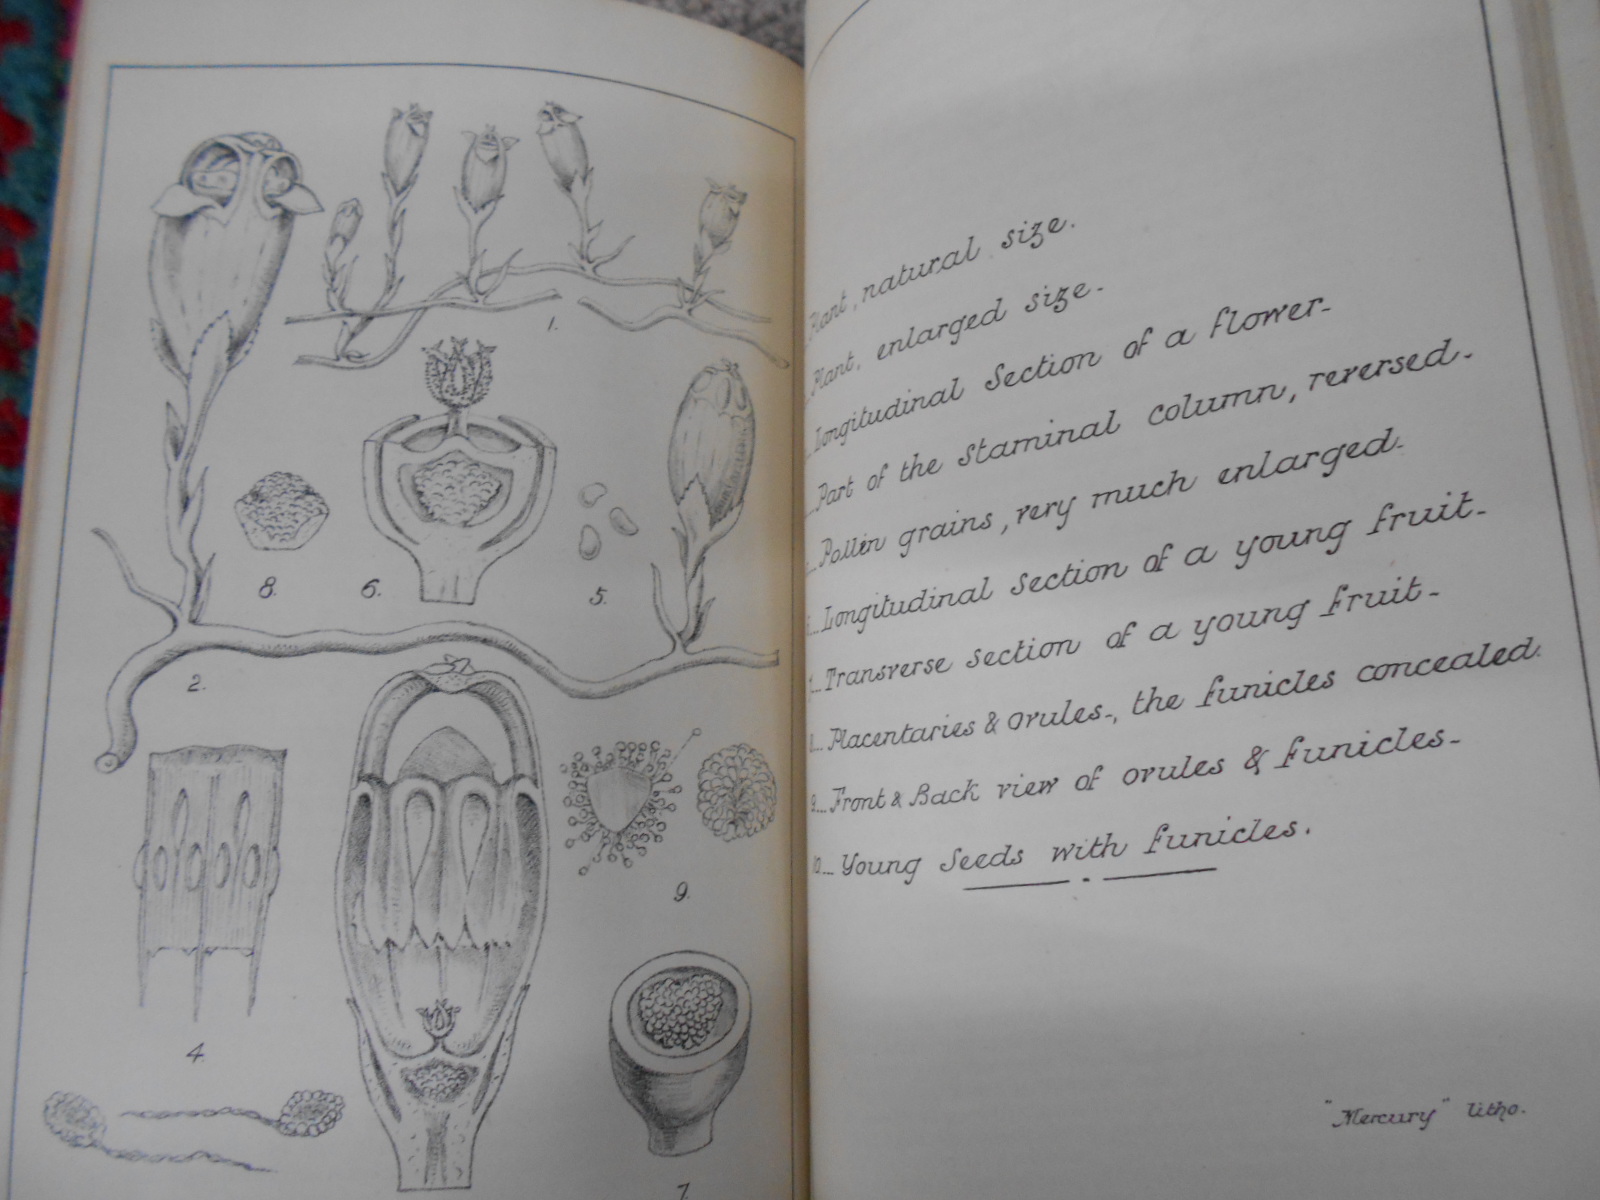 1.
8.
6.
5.
2.
9.
4.
7.
Plant, natural size.
Plant, enlarged size.
Longitudinal Section of a flower.
Part of the Staminal column, reversed.
Pollen grains, very much enlarged.
Longitudinal Section of a young fruit.
Transverse Section of a young fruit.
Placentaries & ovules, the funicles concealed.
9. Front & Back view of ovules & funicles.
10. Young Seeds with funicles.
"Mercury" litho.